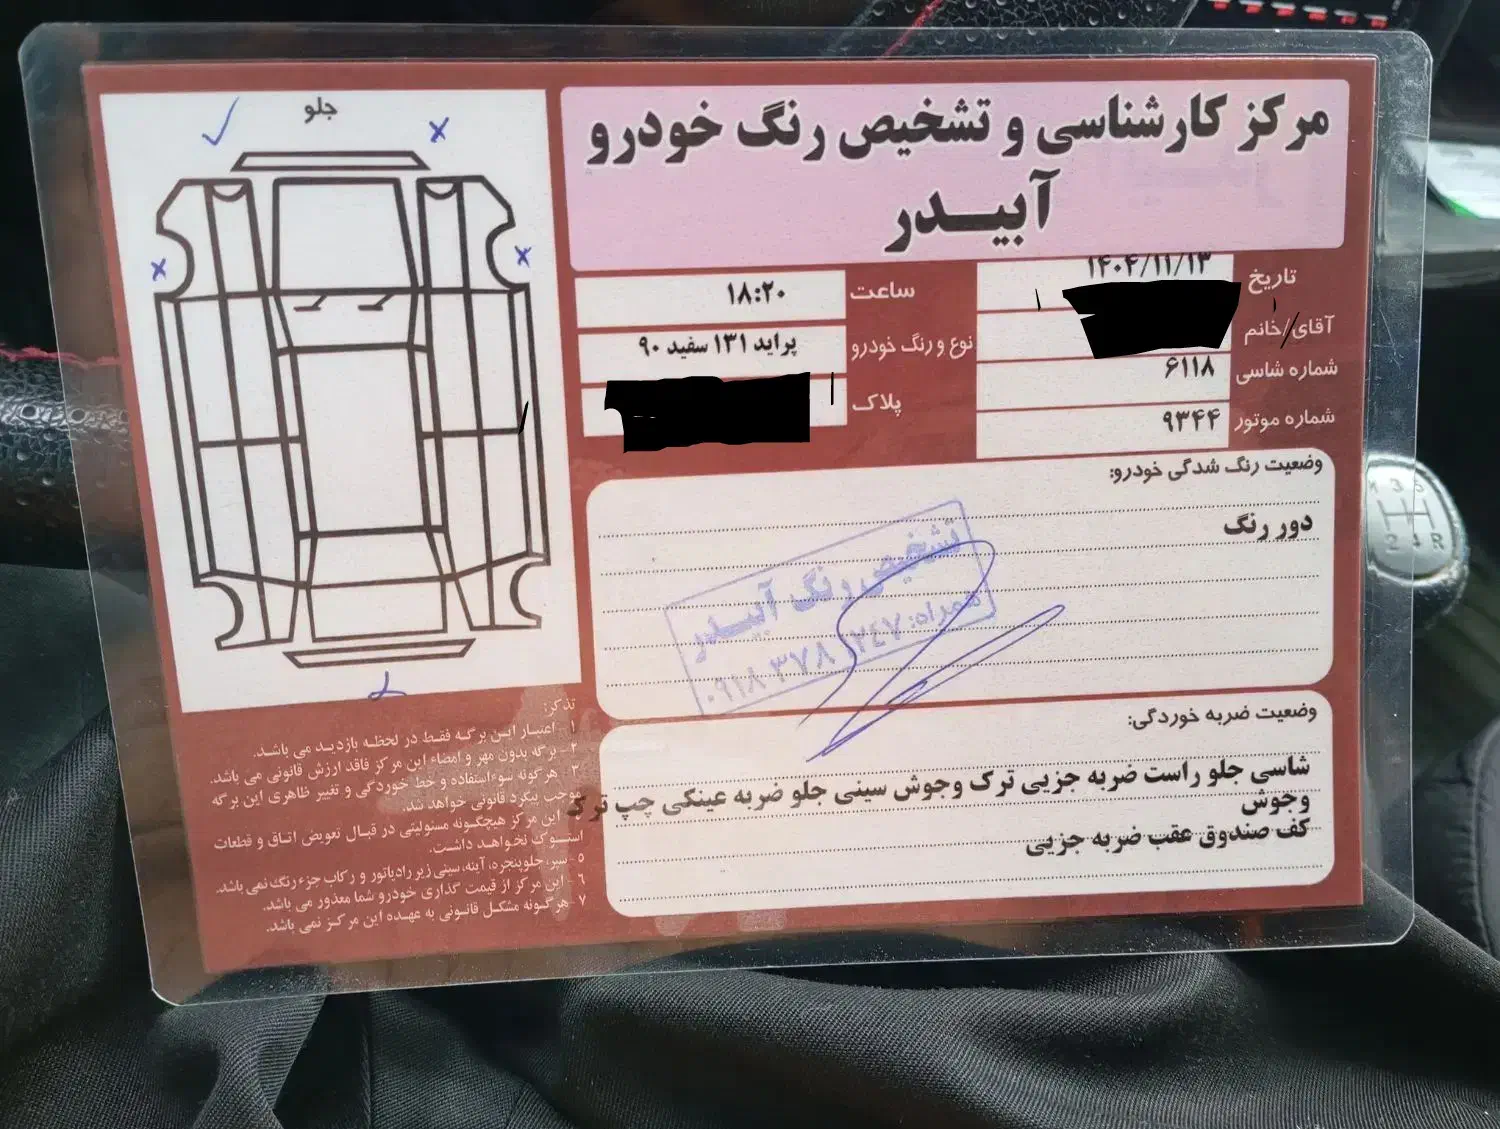 مرکز کارشناسی و تشخیص رنگ خودرو
آبیـدر
جلو
تاریخ ۱۴۰۴/۱۱/۱۳
ساعت ۱۸:۲۰
آقای/خانم
نوع و رنگ خودرو پراید ۱۳۱ سفید ۹۰
شماره شاسی ۶۱۱۸
پلاک
شماره موتور ۹۳۴۴
وضعیت رنگ شدگی خودرو:
دور رنگ
تشخیص رنگ آبیدر
همراه: ۰۹۱۸ ۳۷۸
وضعیت ضربه خوردگی:
شاسی جلو راست ضربه جزیی ترک وجوش سینی جلو ضربه عینکی چپ ترک
وجوش
کف صندوق عقب ضربه جزیی
تذکر:
۱- اعتبار این برگه فقط در لحظه بازدید می باشد.
۲- برگه بدون مهر و امضاء این مرکز فاقد ارزش قانونی می باشد.
۳- هرگونه سوء استفاده و خط خوردگی و تغییر ظاهری این برگه
موجب پیگرد قانونی خواهد شد.
این مرکز هیچگونه مسئولیتی در قبال تعویض اتاق و قطعات
استوک نخواهد داشت.
۵- سپر، جلوپنجره، آینه، سینی زیر رادیاتور و رکاب جزء رنگ نمی باشد.
۶- این مرکز از قیمت گذاری خودرو شما معذور می باشد.
۷- هرگونه مشکل قانونی به عهده این مرکز نمی باشد.
1 3 5
2 4 R